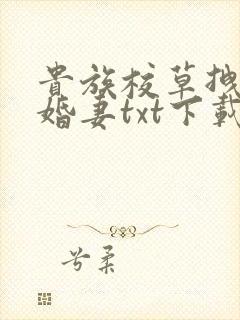 貴族校草拽
婚妻txt下載
兮柔